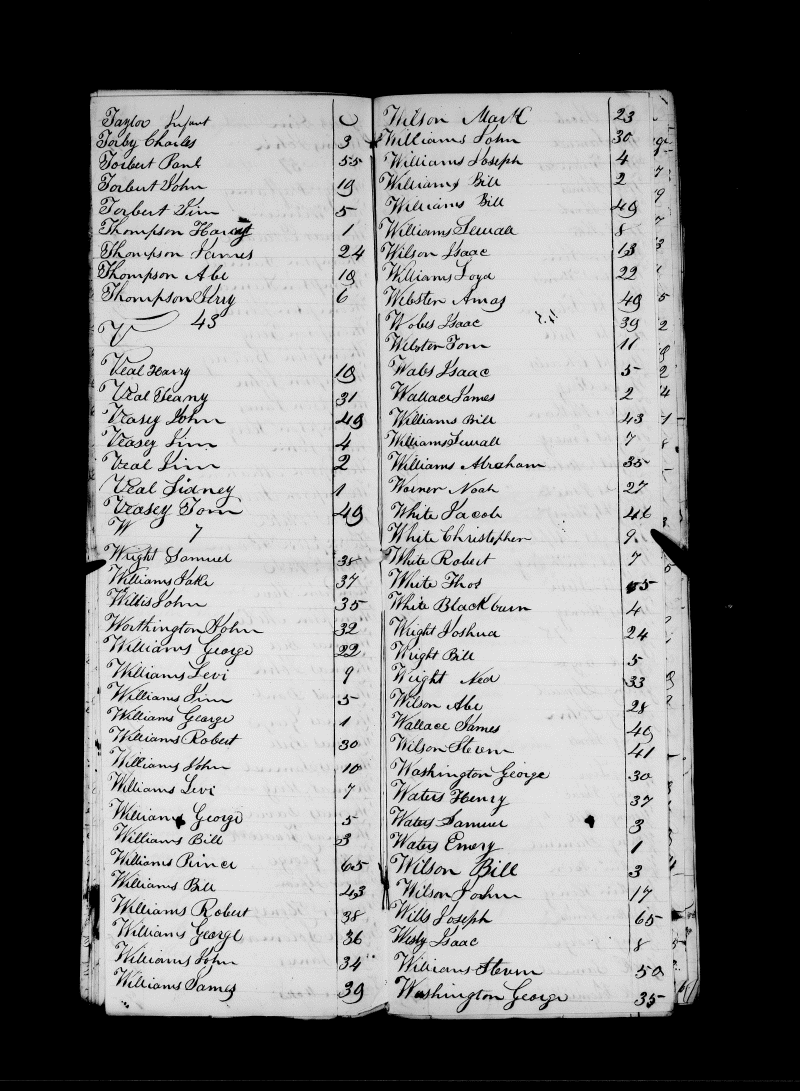 Taylor Infant 0
Torby Charles 3
Torbert Paul 55
Torbert John 19
Torbert Jim 5
Thompson Harry 1
Thompson James 24
Thompson Abe 19
Thompson Jerry 6
V 43
Veal Harry 19
Veal Teany 31
Veasey John 49
Veasey Jim 4
Veal Jim 2
Veal Sidney 1
Veasey Tom 49
W 7
Wright Samuel 38
Williams Jake 37
Willis John 35
Worthington John 32
Williams George 22
Williams Levi 9
Williams Jim 5
Williams George 1
Williams Robert 30
Williams John 10
Williams Levi 7
Williams George 5
Williams Bill 3
Williams Prince 65
Williams Bill 43
Williams Robert 38
Williams George 36
Williams John 34
Williams James 39
Wilson Mark 23
Williams John 30
Williams Joseph 4
Williams Bill 2
Williams Bill 49
Williams Sewall 8
Wilson Isaac 13
Williams Loyd 22
Webster Amas 49
Wobes Isaac 39
Webster Tom 11
Wabs Isaac 5
Wallace James 2
Williams Bill 43
Williams Sewall 7
Williams Abraham 35
Warner Noah 27
White Jacob 46
White Christopher 9
White Robert 7
White Thos 55
White Blackburn 4
Wright Joshua 24
Wright Bill 5
Wright Ned 33
Wilson Abe 28
Wallace James 49
Wilson Steven 41
Washington George 30
Waters Henry 37
Waters Samuel 3
Waters Emery 1
Wilson Bill 3
Wilson John 17
Wills Joseph 65
Wesly Isaac 8
Williams Steven 50
Washington George 35